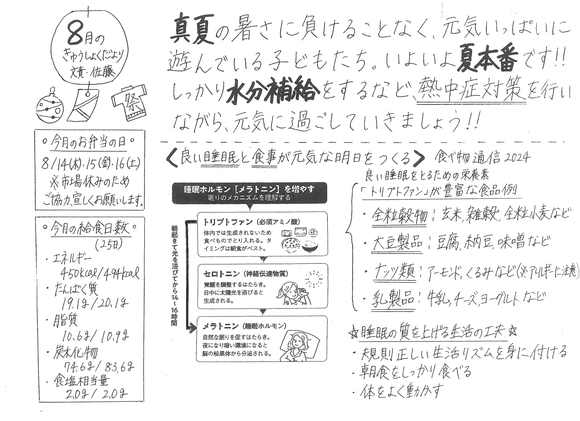 8月の
きゅうしょくだより
文責・佐藤
祭
真夏の暑さに負けることなく、元気いっぱいに
遊んでいる子どもたち。いよいよ夏本番です!!
しっかり水分補給をするなど、熱中症対策を行い
ながら、元気に過ごしていきましょう!!
○今月のお弁当の日○
8/14(木)・15(金)・16(土)
※市場休みのため
ご協力宜しくお願いします。
○今月の給食日数○
(25日)
・エネルギー
450kcal/494kcal
・たんぱく質
19.1g/20.1g
・脂質
10.6g/10.9g
・炭水化物
74.6g/83.6g
・食塩相当量
2.0g/2.0g
〈良い睡眠と食事が元気な明日をつくる〉 食べ物通信2024
睡眠ホルモン[メラトニン]を増やす
眠りのメカニズムを理解する
朝起きて光を浴びてから14~16時間
トリプトファン(必須アミノ酸)
体内では生成されないため
食べものでとり入れる。タ
イミングは朝食がベスト。
セロトニン(神経伝達物質)
覚醒を調整するはたらき。
日中に太陽光を浴びると
生成される。
メラトニン(睡眠ホルモン)
自然な眠りを促すはたらき。
夜になり暗い環境になると
脳の松果体から分泌される。
良い睡眠をとるための栄養素
「トリプトファン」が豊富な食品例
・全粒穀物:玄米、雑穀、全粒小麦など
・大豆製品:豆腐、納豆、味噌など
・ナッツ類:アーモンド、くるみなど(※アレルギーに注意)
・乳製品:牛乳、チーズ、ヨーグルトなど
☆睡眠の質を上げる生活の工夫☆
・規則正しい生活リズムを身に付ける
・朝食をしっかり食べる
・体をよく動かす